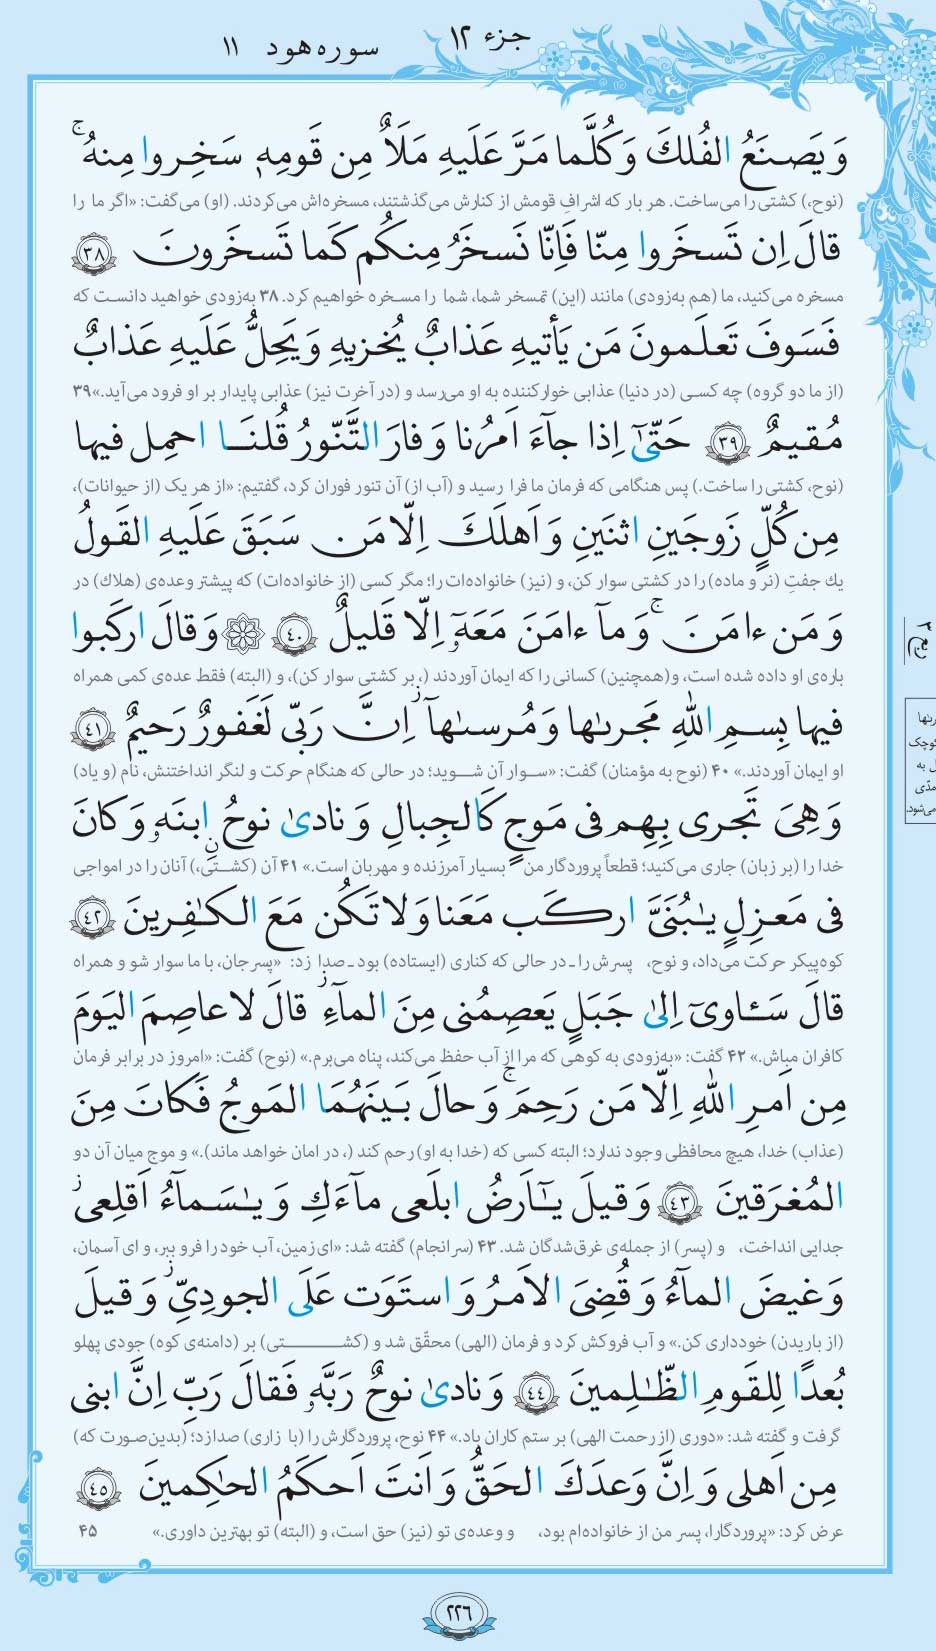 جزء ۱۲
سوره هود ۱۱
وَ يَصنَعُ الفُلكَ وَ كُلَّما مَرَّ عَلَيهِ مَلَاٌ مِن قَومِهٖ سَخِروا مِنهُ ۚ
(نوح،) کشتی را می‌ساخت. هر بار که اشرافِ قومش از کنارش می‌گذشتند، مسخره‌اش می‌کردند. (او) می‌گفت: «اگر ما را
قالَ اِن تَسخَروا مِنّا فَاِنّا نَسخَرُ مِنكُم كَما تَسخَرونَ ﴿٣٨﴾
مسخره می‌کنید، ما (هم به‌زودی) مانند (این) تمسخر شما، شما را مسخره خواهیم کرد. ۳۸ به‌زودی خواهید دانست که
فَسَوفَ تَعلَمونَ مَن يَأتيهِ عَذابٌ يُخزيهِ وَ يَحِلُّ عَلَيهِ عَذابٌ
(از ما دو گروه) چه کسی (در دنیا) عذابی خوارکننده به او می‌رسد و (در آخرت نیز) عذابی پایدار بر او فرود می‌آید.» ۳۹
مُقيمٌ ﴿٣٩﴾ حَتّىٰٓ اِذا جآءَ اَمرُنا وَ فارَ التَّنّورُ قُلنَا احمِل فيها
(نوح، کشتی را ساخت.) پس هنگامی که فرمان ما فرا رسید و (آب از) آن تنور فوران کرد، گفتیم: «از هر یک (از حیوانات)،
مِن كُلٍّ زَوجَينِ اثنَينِ وَ اَهلَكَ اِلّا مَن سَبَقَ عَلَيهِ القَولُ
یك جفتِ (نر و ماده) را در کشتی سوار کن، و (نیز) خانواده‌ات را؛ مگر کسی (از خانواده‌ات) که پیشتر وعده‌ی (هلاك) در
وَ مَن ءامَنَ ۚ وَ مآ ءامَنَ مَعَهٗٓ اِلّا قَليلٌ ﴿٤٠﴾ ۞ وَ قالَ اركَبوا
باره‌ی او داده شده است، و(همچنین) کسانی را که ایمان آوردند (، بر کشتی سوار کن)، و (البته) فقط عده‌ی کمی همراه
فيها بِسمِ اللّٰهِ مَجرىٰها وَ مُرسىٰهآ ۚ اِنَّ رَبّى لَغَفورٌ رَحيمٌ ﴿٤١﴾
او ایمان آوردند.» ۴۰ (نوح به مؤمنان) گفت: «سوار آن شوید؛ در حالی که هنگام حرکت و لنگر انداختنش، نام (و یاد)
وَ هِىَ تَجرى بِهِم فى مَوجٍ كَالجِبالِ وَ نادىٰ نوحٌ ابنَهٗ وَ كانَ
خدا را (بر زبان) جاری می‌کنید؛ قطعاً پروردگار من بسیار آمرزنده و مهربان است.» ۴۱ آن (کشتی،) آنان را در امواجی
فى مَعزِلٍ يٰبُنَىَّ اركَب مَعَنا وَ لا تَكُن مَعَ الكٰفِرينَ ﴿٤٢﴾
کوه‌پیکر حرکت می‌داد، و نوح، پسرش را ـ در حالی که کناری (ایستاده) بود ـ صدا زد: «پسرجان، با ما سوار شو و همراه
قالَ سَـٔاوىٓ اِلىٰ جَبَلٍ يَعصِمُنى مِنَ المآءِ ۚ قالَ لا عاصِمَ اليَومَ
کافران مباش.» ۴۲ گفت: «به‌زودی به کوهی که مرا از آب حفظ می‌کند، پناه می‌برم.» (نوح) گفت: «امروز در برابر فرمان
مِن اَمرِ اللّٰهِ اِلّا مَن رَحِمَ ۚ وَ حالَ بَينَهُمَا المَوجُ فَكانَ مِنَ
(عذاب) خدا، هیچ محافظی وجود ندارد؛ البته کسی که (خدا به او) رحم کند (، در امان خواهد ماند).» و موج میان آن دو
المُغرَقينَ ﴿٤٣﴾ وَ قيلَ يٰٓاَرضُ ابلَعى مآءَكِ وَ يٰسَمآءُ اَقلِعى
جدایی انداخت، و (پسر) از جمله‌ی غرق‌شدگان شد. ۴۳ (سرانجام) گفته شد: «ای زمین، آب خود را فرو ببر، و ای آسمان،
وَ غيضَ المآءُ وَ قُضِىَ الاَمرُ وَ استَوَت عَلَى الجودِىِّ ۚ وَ قيلَ
(از باریدن) خودداری کن.» و آب فروکش کرد و فرمان (الهی) محقّق شد و (کشتی) بر (دامنه‌ی کوه) جودی پهلو
بُعدًا لِلقَومِ الظّٰلِمينَ ﴿٤٤﴾ وَ نادىٰ نوحٌ رَبَّهٗ فَقالَ رَبِّ اِنَّ ابنى
گرفت و گفته شد: «دوری (از رحمت الهی) بر ستم کاران باد.» ۴۴ نوح، پروردگارش را (با زاری) صدا زد؛ (بدین‌صورت که)
مِن اَهلى وَ اِنَّ وَعدَكَ الحَقُّ وَ اَنتَ اَحكَمُ الحٰكِمينَ ﴿٤٥﴾
عرض کرد: «پروردگارا، پسر من از خانواده‌ام بود، و وعده‌ی تو (نیز) حق است، و (البته) تو بهترین داوری.» ۴۵
ربع ۲
ربٰها
کوچک
ل به
مدّی
می‌شود.
۲۲۶